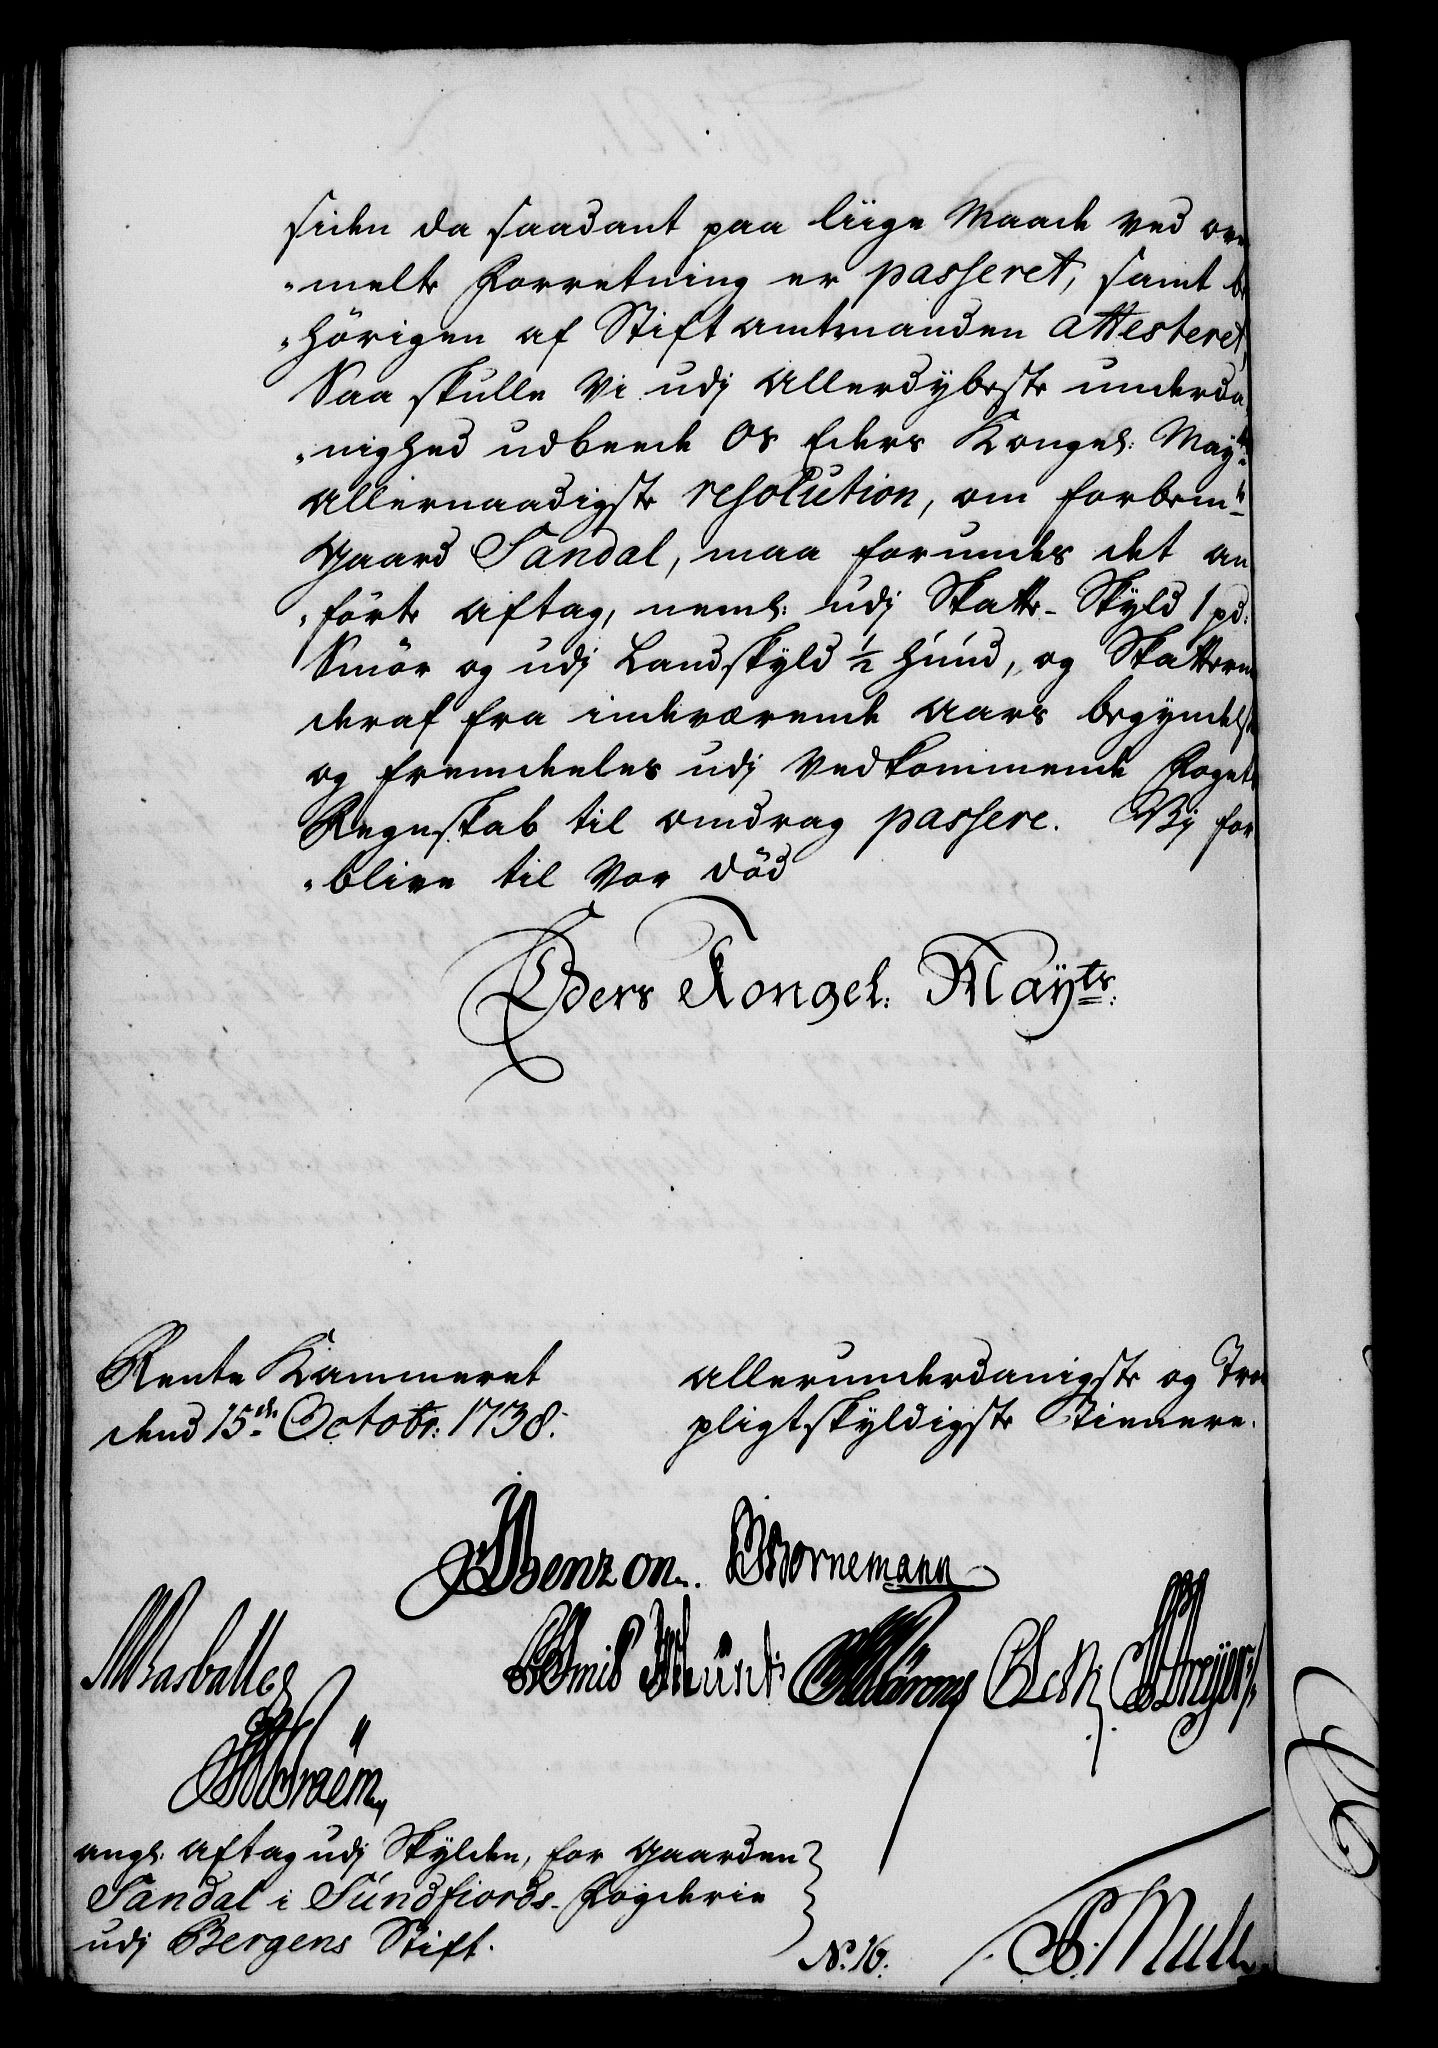 siden da saadant paa liige Maade ved oven
-melte Forretning er passeret, samt be
-hörigen af Stift amtmanden attesteret,
Saa skulle Vi udj allerdybeste underda
-nighed udbeede Os Eders Kongel: Mayts
allernaadigste resolution, om forbemte
Gaard Sandal, maa forundes det an
-förte aftag, neml: udj Skatte-Skyld 1 pd:
Smör og udj Landskyld ½ Huud, og Skatterne
deraf fra indeværende Aars begyndelse
og fremdeeles udj Vedkommende Fogets
Regnskab til omdrag passere. Vij for
-blive til Vor död
Eders Kongel: Mayts:
Rente Kammeret
dend 15de Octobr: 1738.
allerunderdanigste og Troe
pligtskyldigste Tienere.
Benzon. Bornemann
Smith Münt Beck Dreyer
angl: aftag udj Skylden, for Gaarden
Sandal i Sundfiords-Fogderie
udj Bergens Stift.
No. 16.
Mull